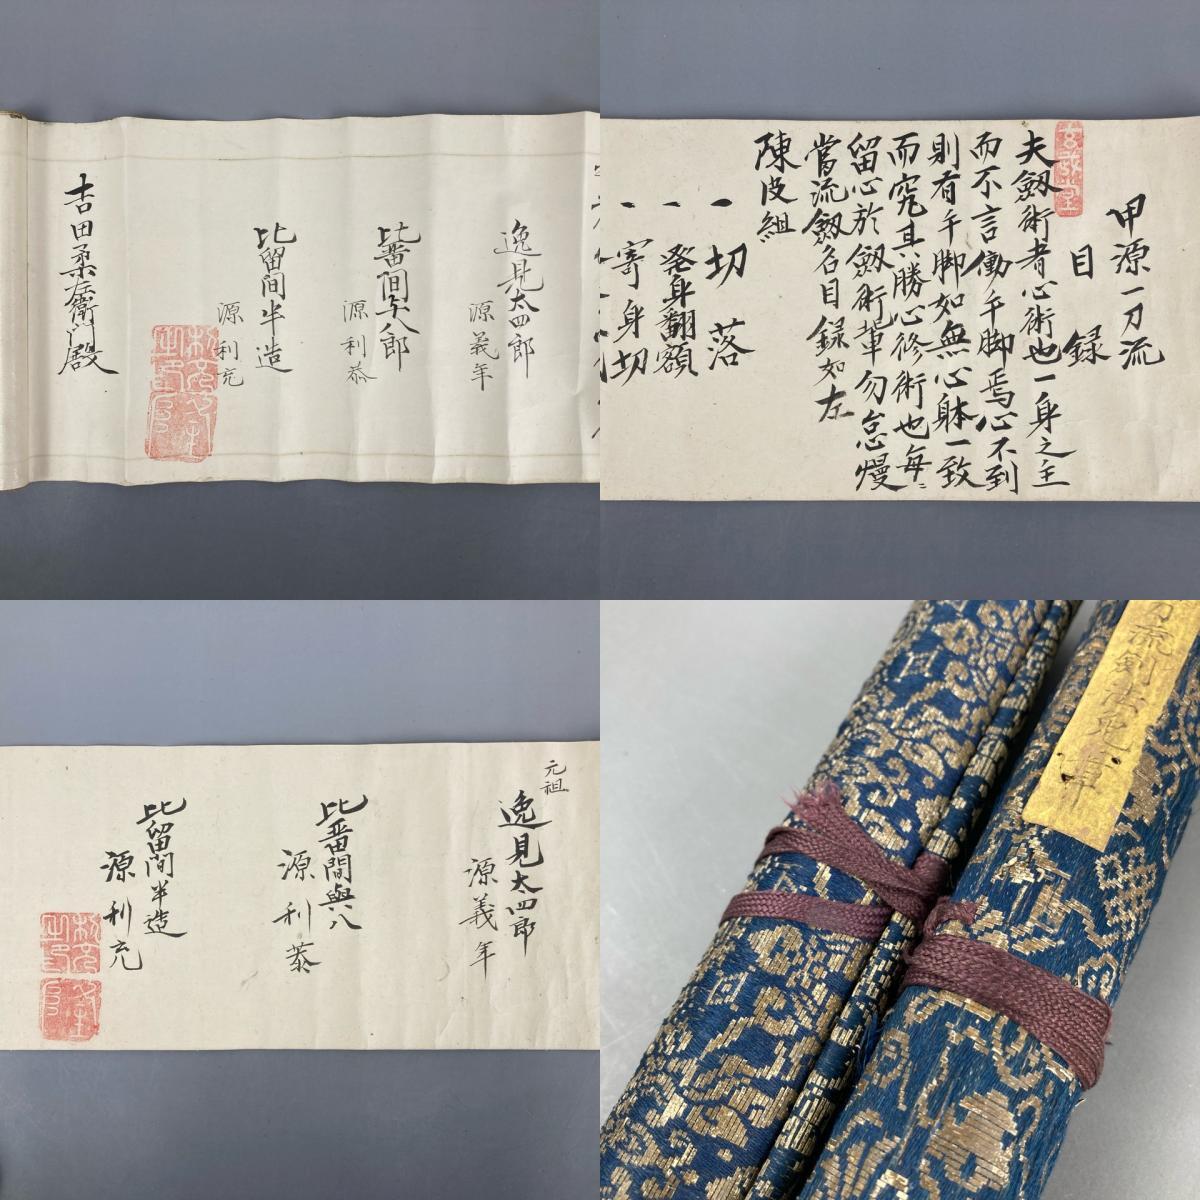 逸見太四郎
源義年
比畨間与八郎
源利恭
比留間半造
源利充
吉田柔左衛門殿
甲源一刀流
目録
夫劔術者心術也一身之主
而不言働手脚焉心不到
則有手脚如無心躰一致
而究其勝心修術也毎〻
留心於劔術軰勿怠慢
當流劔名目録如左
陳皮組
一 切落
一 発身翻額
一 寄身切
元祖
逸見太四郎
源義年
比畨間與八
源利恭
比留間半造
源利充
刀流剣法免